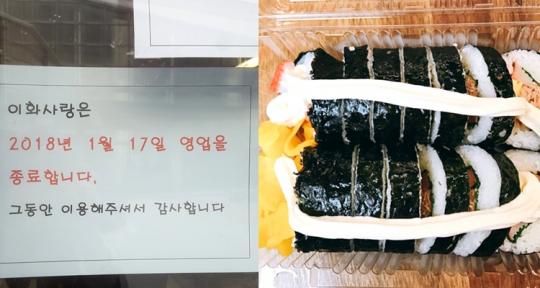 이화사랑은
2018년 1월 17일 영업을
종료합니다.
그동안 이용해주셔서 감사합니다